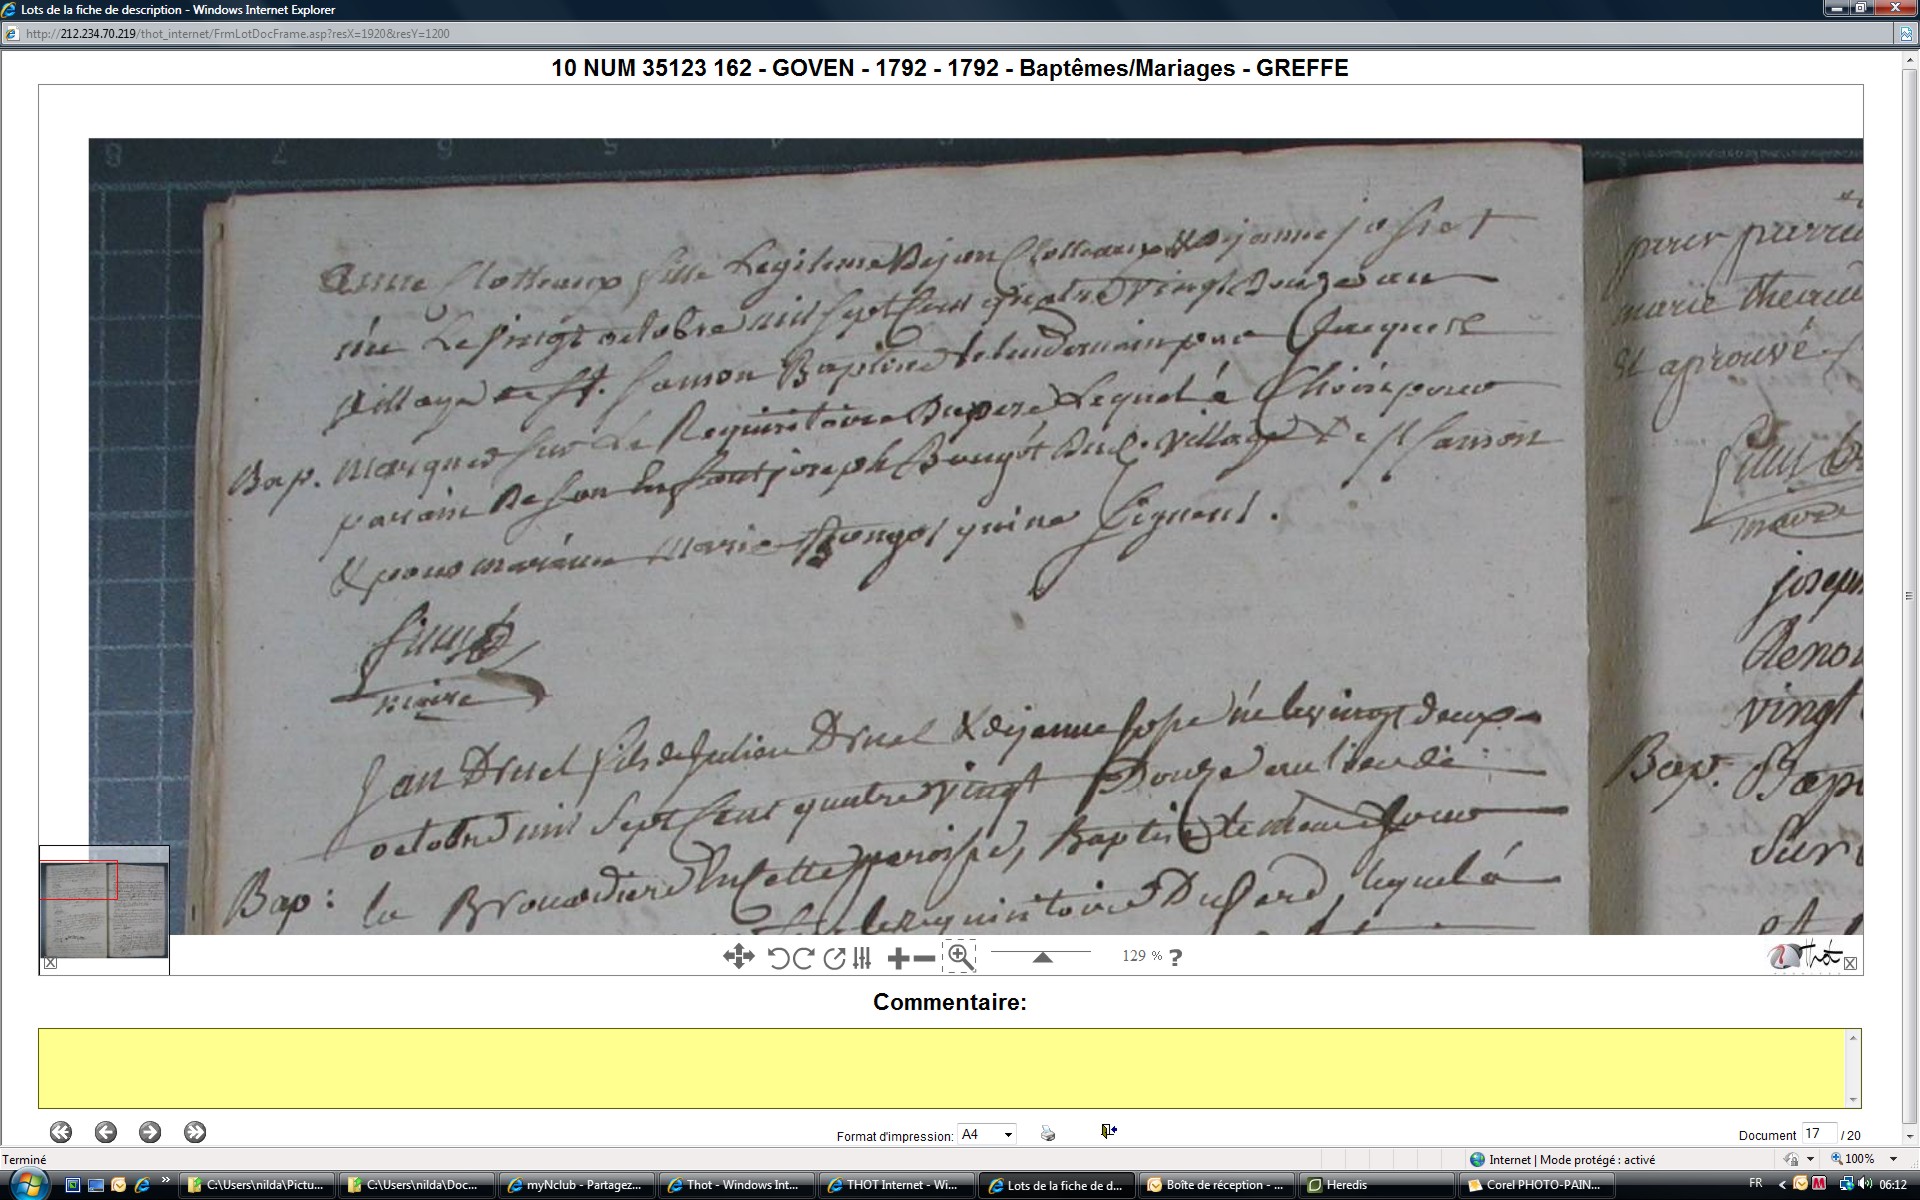 Lots de la fiche de description - Windows Internet Explorer
http://212.234.70.219/thot_internet/FrmLotDocFrame.asp?resX=1920&resY=1200
10 NUM 35123 162 - GOVEN - 1792 - 1792 - Baptêmes/Mariages - GREFFE
8 7 6 5 4
Anne Clolteaux fille Legitime De jan Clolteaux & De janne
née Le vingt octobre mil sept Cent quatre vingt Douze au
village de St. Samson Baptisée le lendemain par Jacques
Bap. sur Le Requisitoire Du pere Lequel à Choisi pour
parain De son joseph Bougot Du d. village De St Samson
& pour maraine Marie Bougot qui ne Signent.
maire
Jan Druel fils de Julien Druel & de janne née le vingt deux
octobre mil Sept Cent quatre vingt Douze au lieu de
Bap : la Brouardiere En Cette paroisse, Baptisé le même jour
le requisitoire Du Pere, lequel à
pour parrain
marie
et aprouvé
maire
joseph
Renou
vingt
Bap. Bapt
Sur
129 % ?
Thot
Commentaire:
Format d'impression: A4
Document 17 / 20
Terminé
Internet | Mode protégé : activé
100%
C:\Users\nilda\Pictu...
C:\Users\nilda\Doc...
myNclub - Partagez...
Thot - Windows Int...
THOT Internet - Wi...
Lots de la fiche de d...
Boîte de réception - ...
Heredis
Corel PHOTO-PAIN...
FR
06:12